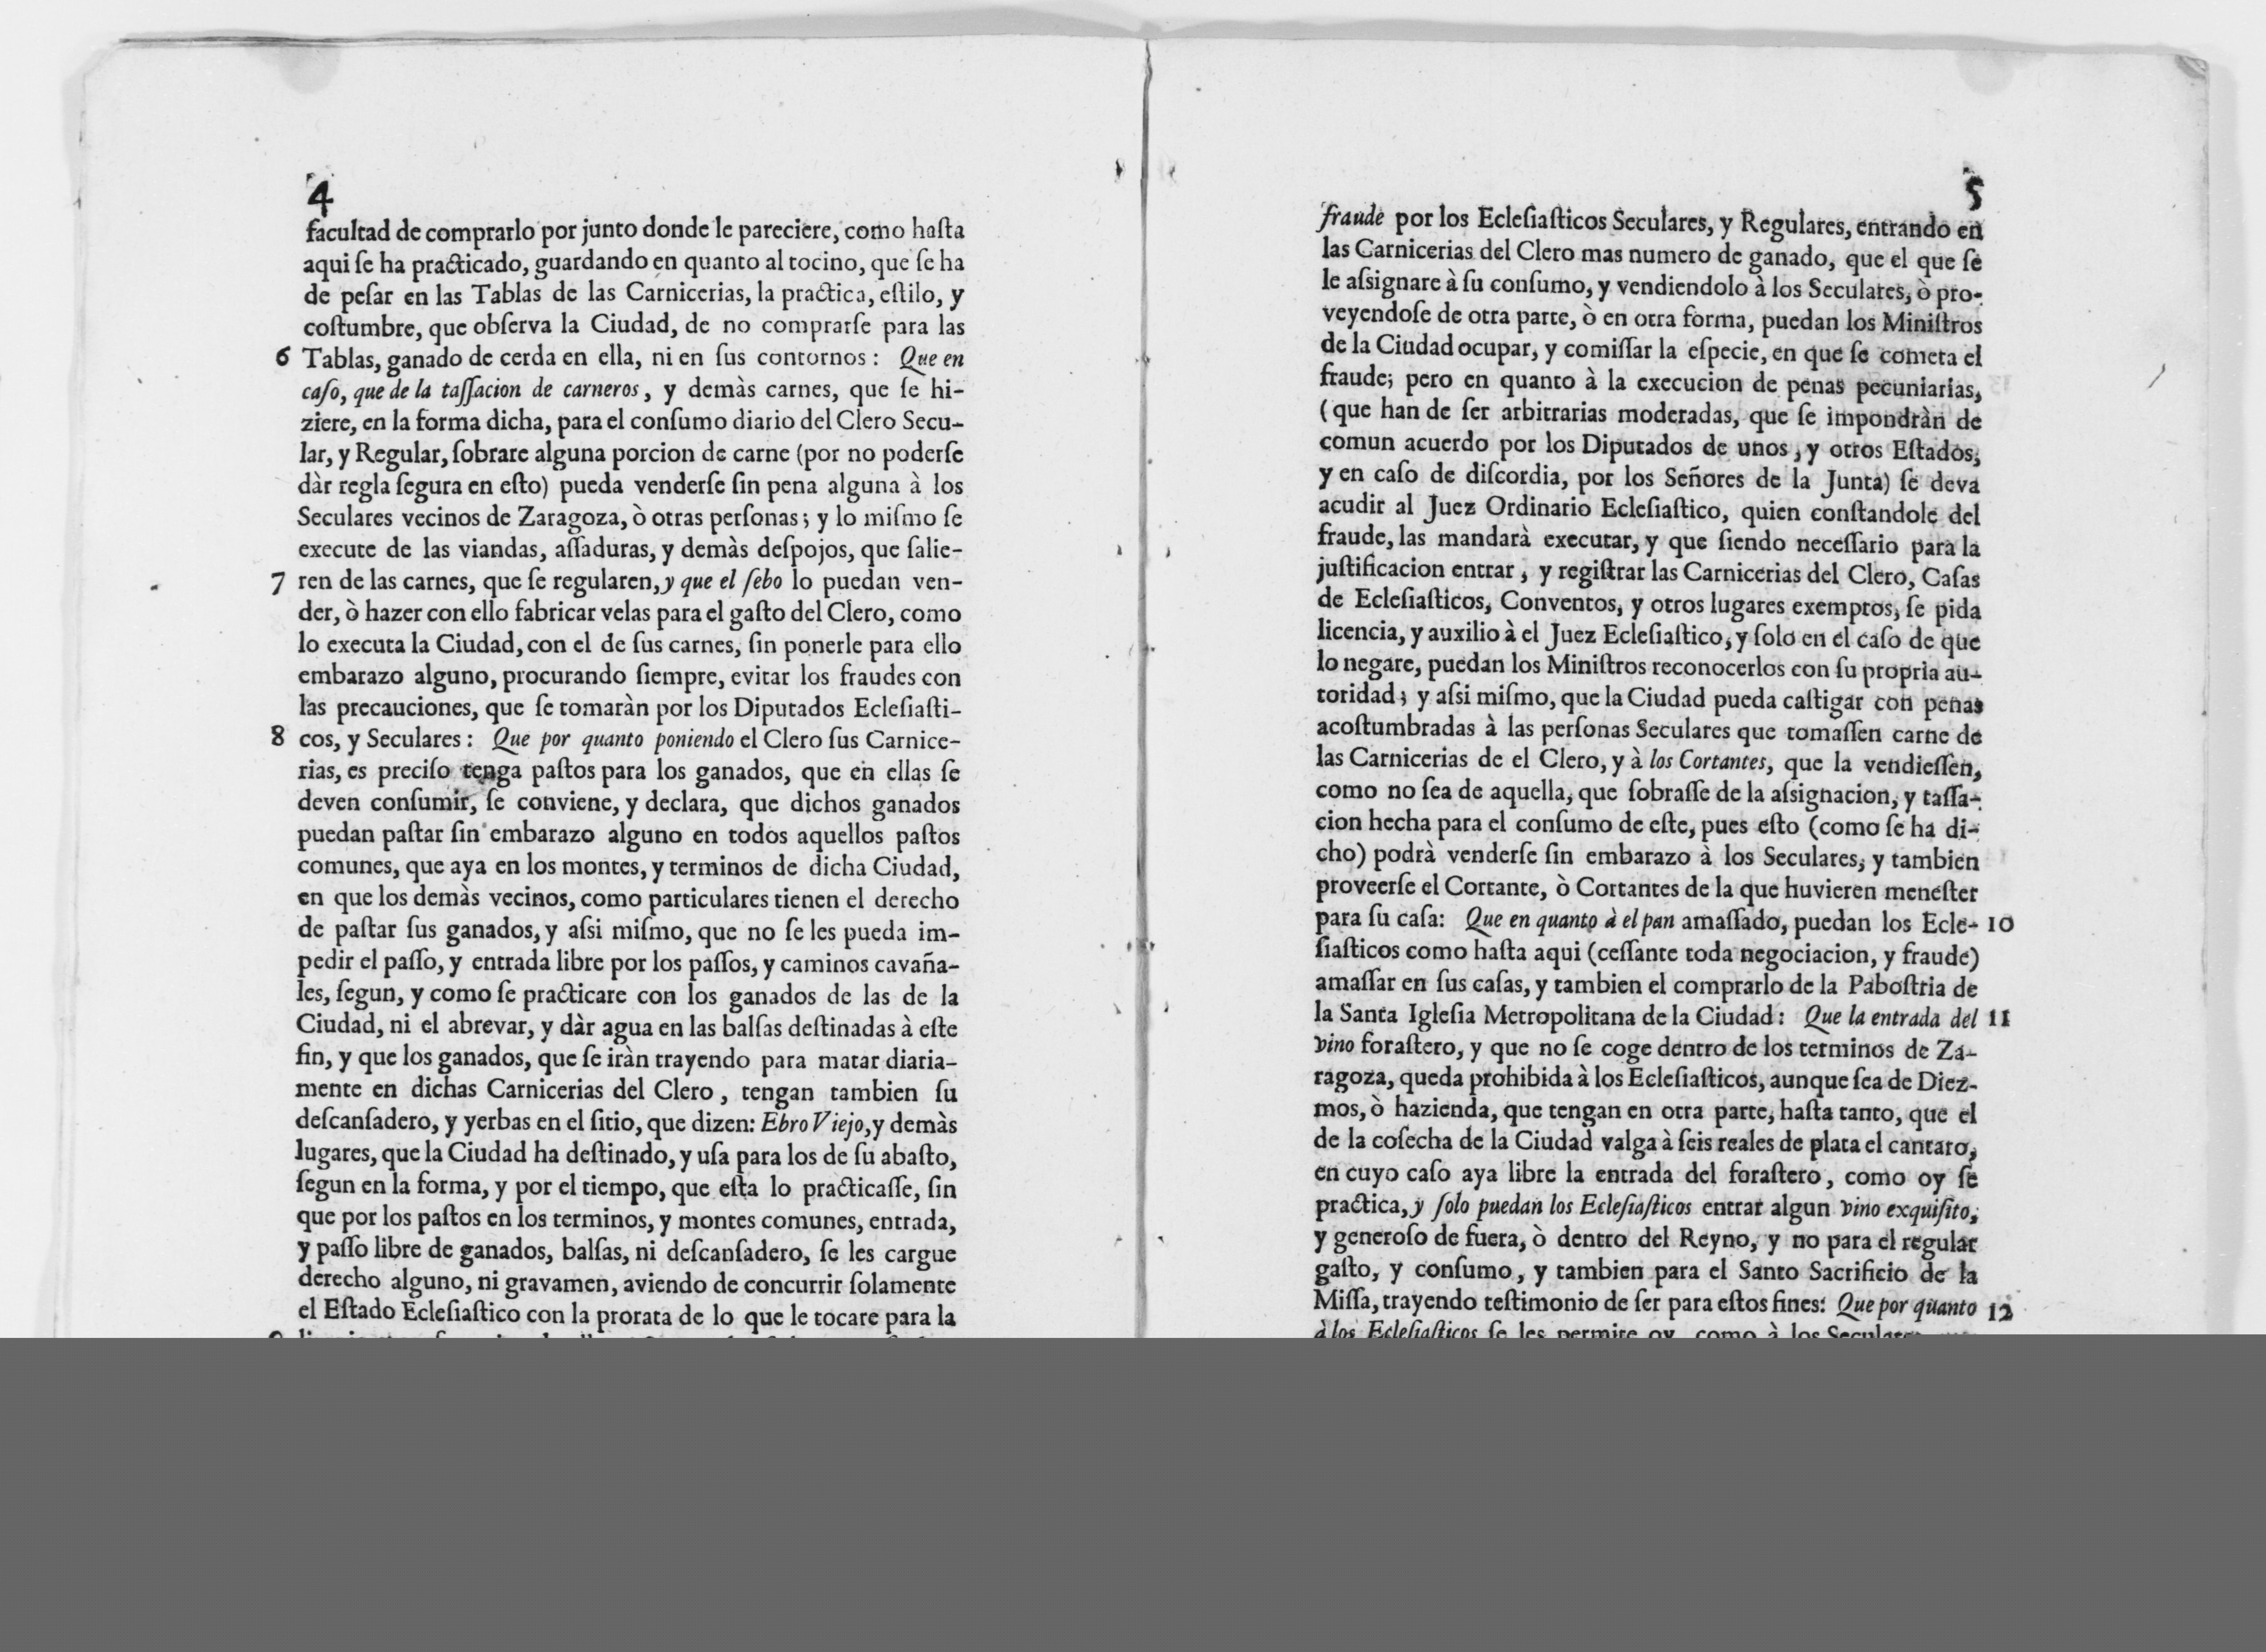 4
facultad de comprarlo por junto donde le pareciere, como haſta
aqui ſe ha practicado, guardando en quanto al tocino, que ſe ha
de peſar en las Tablas de las Carnicerias, la practica, eſtilo, y
coſtumbre, que obſerva la Ciudad, de no comprarſe para las
6 Tablas, ganado de cerda en ella, ni en ſus contornos : Que en
caſo, que de la taſſacion de carneros, y demàs carnes, que ſe hi-
ziere, en la forma dicha, para el conſumo diario del Clero Secu-
lar, y Regular, ſobrare alguna porcion de carne (por no poderſe
dàr regla ſegura en eſto) pueda venderſe ſin pena alguna à los
Seculares vecinos de Zaragoza, ò otras perſonas; y lo miſmo ſe
execute de las viandas, aſſaduras, y demàs deſpojos, que ſalie-
7 ren de las carnes, que ſe regularen, y que el ſebo lo puedan ven-
der, ò hazer con ello fabricar velas para el gaſto del Clero, como
lo executa la Ciudad, con el de ſus carnes, ſin ponerle para ello
embarazo alguno, procurando ſiempre, evitar los fraudes con
las precauciones, que ſe tomaràn por los Diputados Ecleſiaſti-
8 cos, y Seculares : Que por quanto poniendo el Clero ſus Carnice-
rias, es preciſo tenga paſtos para los ganados, que en ellas ſe
deven conſumir, ſe conviene, y declara, que dichos ganados
puedan paſtar ſin embarazo alguno en todos aquellos paſtos
comunes, que aya en los montes, y terminos de dicha Ciudad,
en que los demàs vecinos, como particulares tienen el derecho
de paſtar ſus ganados, y aſsi miſmo, que no ſe les pueda im-
pedir el paſſo, y entrada libre por los paſſos, y caminos cavaña-
les, ſegun, y como ſe practicare con los ganados de las de la
Ciudad, ni el abrevar, y dàr agua en las balſas deſtinadas à eſte
fin, y que los ganados, que ſe iràn trayendo para matar diaria-
mente en dichas Carnicerias del Clero, tengan tambien ſu
deſcanſadero, y yerbas en el ſitio, que dizen: Ebro Viejo, y demàs
lugares, que la Ciudad ha deſtinado, y uſa para los de ſu abaſto,
ſegun en la forma, y por el tiempo, que eſta lo practicaſſe, ſin
que por los paſtos en los terminos, y montes comunes, entrada,
y paſſo libre de ganados, balſas, ni deſcanſadero, ſe les cargue
derecho alguno, ni gravamen, aviendo de concurrir ſolamente
el Eſtado Ecleſiaſtico con la prorata de lo que le tocare para la
5
fraude por los Ecleſiaſticos Seculares, y Regulares, entrando en
las Carnicerias del Clero mas numero de ganado, que el que ſe
le aſsignare à ſu conſumo, y vendiendolo à los Seculares, ò pro-
veyendoſe de otra parte, ò en otra forma, puedan los Miniſtros
de la Ciudad ocupar, y comiſſar la eſpecie, en que ſe cometa el
fraude; pero en quanto à la execucion de penas pecuniarias,
(que han de ſer arbitrarias moderadas, que ſe impondràn de
comun acuerdo por los Diputados de unos, y otros Eſtados,
y en caſo de diſcordia, por los Señores de la Junta) ſe deva
acudir al Juez Ordinario Ecleſiaſtico, quien conſtandole del
fraude, las mandarà executar, y que ſiendo neceſſario para la
juſtificacion entrar, y regiſtrar las Carnicerias del Clero, Caſas
de Ecleſiaſticos, Conventos, y otros lugares exemptos, ſe pida
licencia, y auxilio à el Juez Ecleſiaſtico, y ſolo en el caſo de que
lo negare, puedan los Miniſtros reconocerlos con ſu propria au-
toridad; y aſsi miſmo, que la Ciudad pueda caſtigar con penas
acoſtumbradas à las perſonas Seculares que tomaſſen carne de
las Carnicerias de el Clero, y à los Cortantes, que la vendieſſen,
como no ſea de aquella, que ſobraſſe de la aſsignacion, y taſſa-
cion hecha para el conſumo de eſte, pues eſto (como ſe ha di-
cho) podrà venderſe ſin embarazo à los Seculares, y tambien
proveerſe el Cortante, ò Cortantes de la que huvieren meneſter
para ſu caſa: Que en quanto à el pan amaſſado, puedan los Ecle- 10
ſiaſticos como haſta aqui (ceſſante toda negociacion, y fraude)
amaſſar en ſus caſas, y tambien el comprarlo de la Paboſtria de
la Santa Igleſia Metropolitana de la Ciudad: Que la entrada del 11
vino foraſtero, y que no ſe coge dentro de los terminos de Za-
ragoza, queda prohibida à los Ecleſiaſticos, aunque ſea de Diez-
mos, ò hazienda, que tengan en otra parte, haſta tanto, que el
de la coſecha de la Ciudad valga à ſeis reales de plata el cantaro,
en cuyo caſo aya libre la entrada del foraſtero, como oy ſe
practica, y ſolo puedan los Ecleſiaſticos entrar algun vino exquiſito,
y generoſo de fuera, ò dentro del Reyno, y no para el regular
gaſto, y conſumo, y tambien para el Santo Sacrificio de la
Miſſa, trayendo teſtimonio de ſer para eſtos fines: Que por quanto 12
à los Ecleſiaſticos ſe les permite oy, como à los